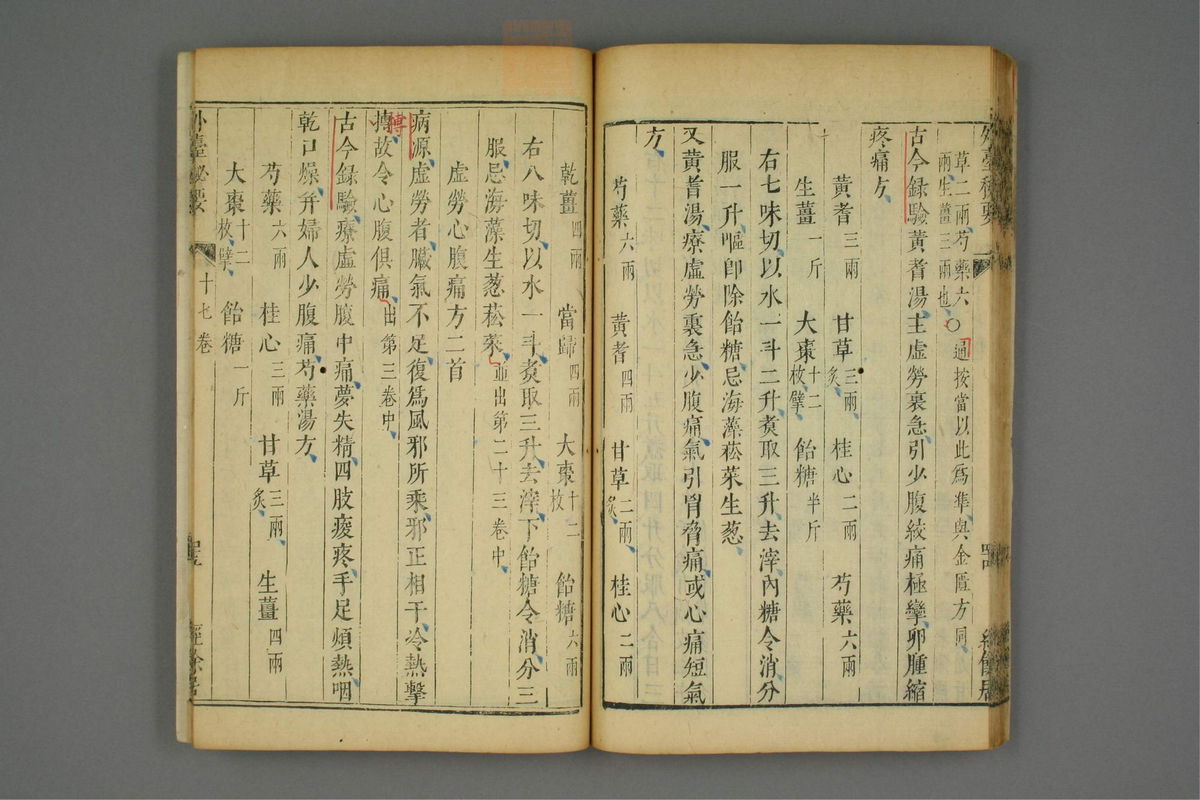 外臺秘要
草二兩芍藥六
兩生薑三兩也
○通按當以此為準與金匱方同
古今録驗黃耆湯主虛勞裏急引少腹絞痛極攣卵腫縮
疼痛方
黃耆三兩 甘草三兩炙 桂心二兩 芍藥六兩
生薑一斤 大棗十二枚擘 飴糖半斤
右七味切以水一斗二升煑取三升去滓內糖令消分
服一升嘔即除飴糖忌海藻菘菜生葱
又黃耆湯療虛勞裏急少腹痛氣引胷脅痛或心痛短氣
方
芍藥六兩 黃耆四兩 甘草二兩炙 桂心二兩
乾薑四兩 當歸四兩 大棗十二枚 飴糖六兩
右八味切以水一斗煑取三升去滓下飴糖令消分三
服忌海藻生葱菘菜並出第二十三卷中
虛勞心腹痛方二首
病源虛勞者臟氣不足復為風邪所乘邪正相干冷熱擊
搏故令心腹俱痛出第三卷中
古今録驗療虛勞腹中痛夢失精四肢痠疼手足煩熱咽
乾口燥并婦人少腹痛芍藥湯方
芍藥六兩 桂心三兩 甘草三兩炙 生薑四兩
大棗十二枚擘 飴糖一斤
外臺秘要 十七卷 經餘居